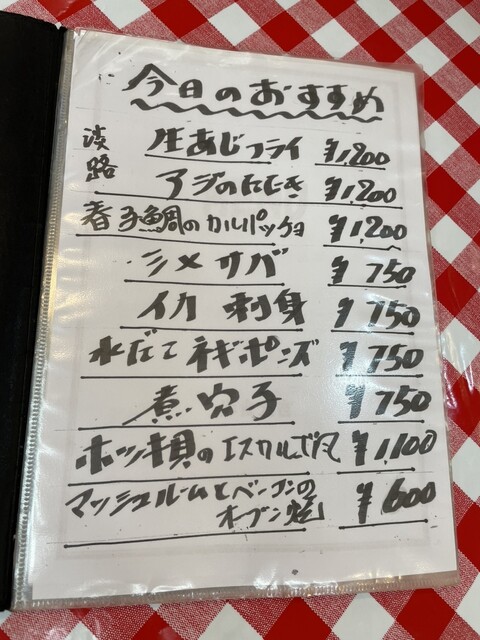 今日のおすすめ
淡路 生あじフライ ¥1,200
アジのたたき ¥1,200
春子鯛のカルパッチョ ¥1,200
シメサバ ¥750
イカ刺身 ¥750
水だこネギポンズ ¥750
煮穴子 ¥750
ホッキ貝のエスカルゴ風 ¥1,100
マッシュルームとベーコンの
オーブン焼 ¥600